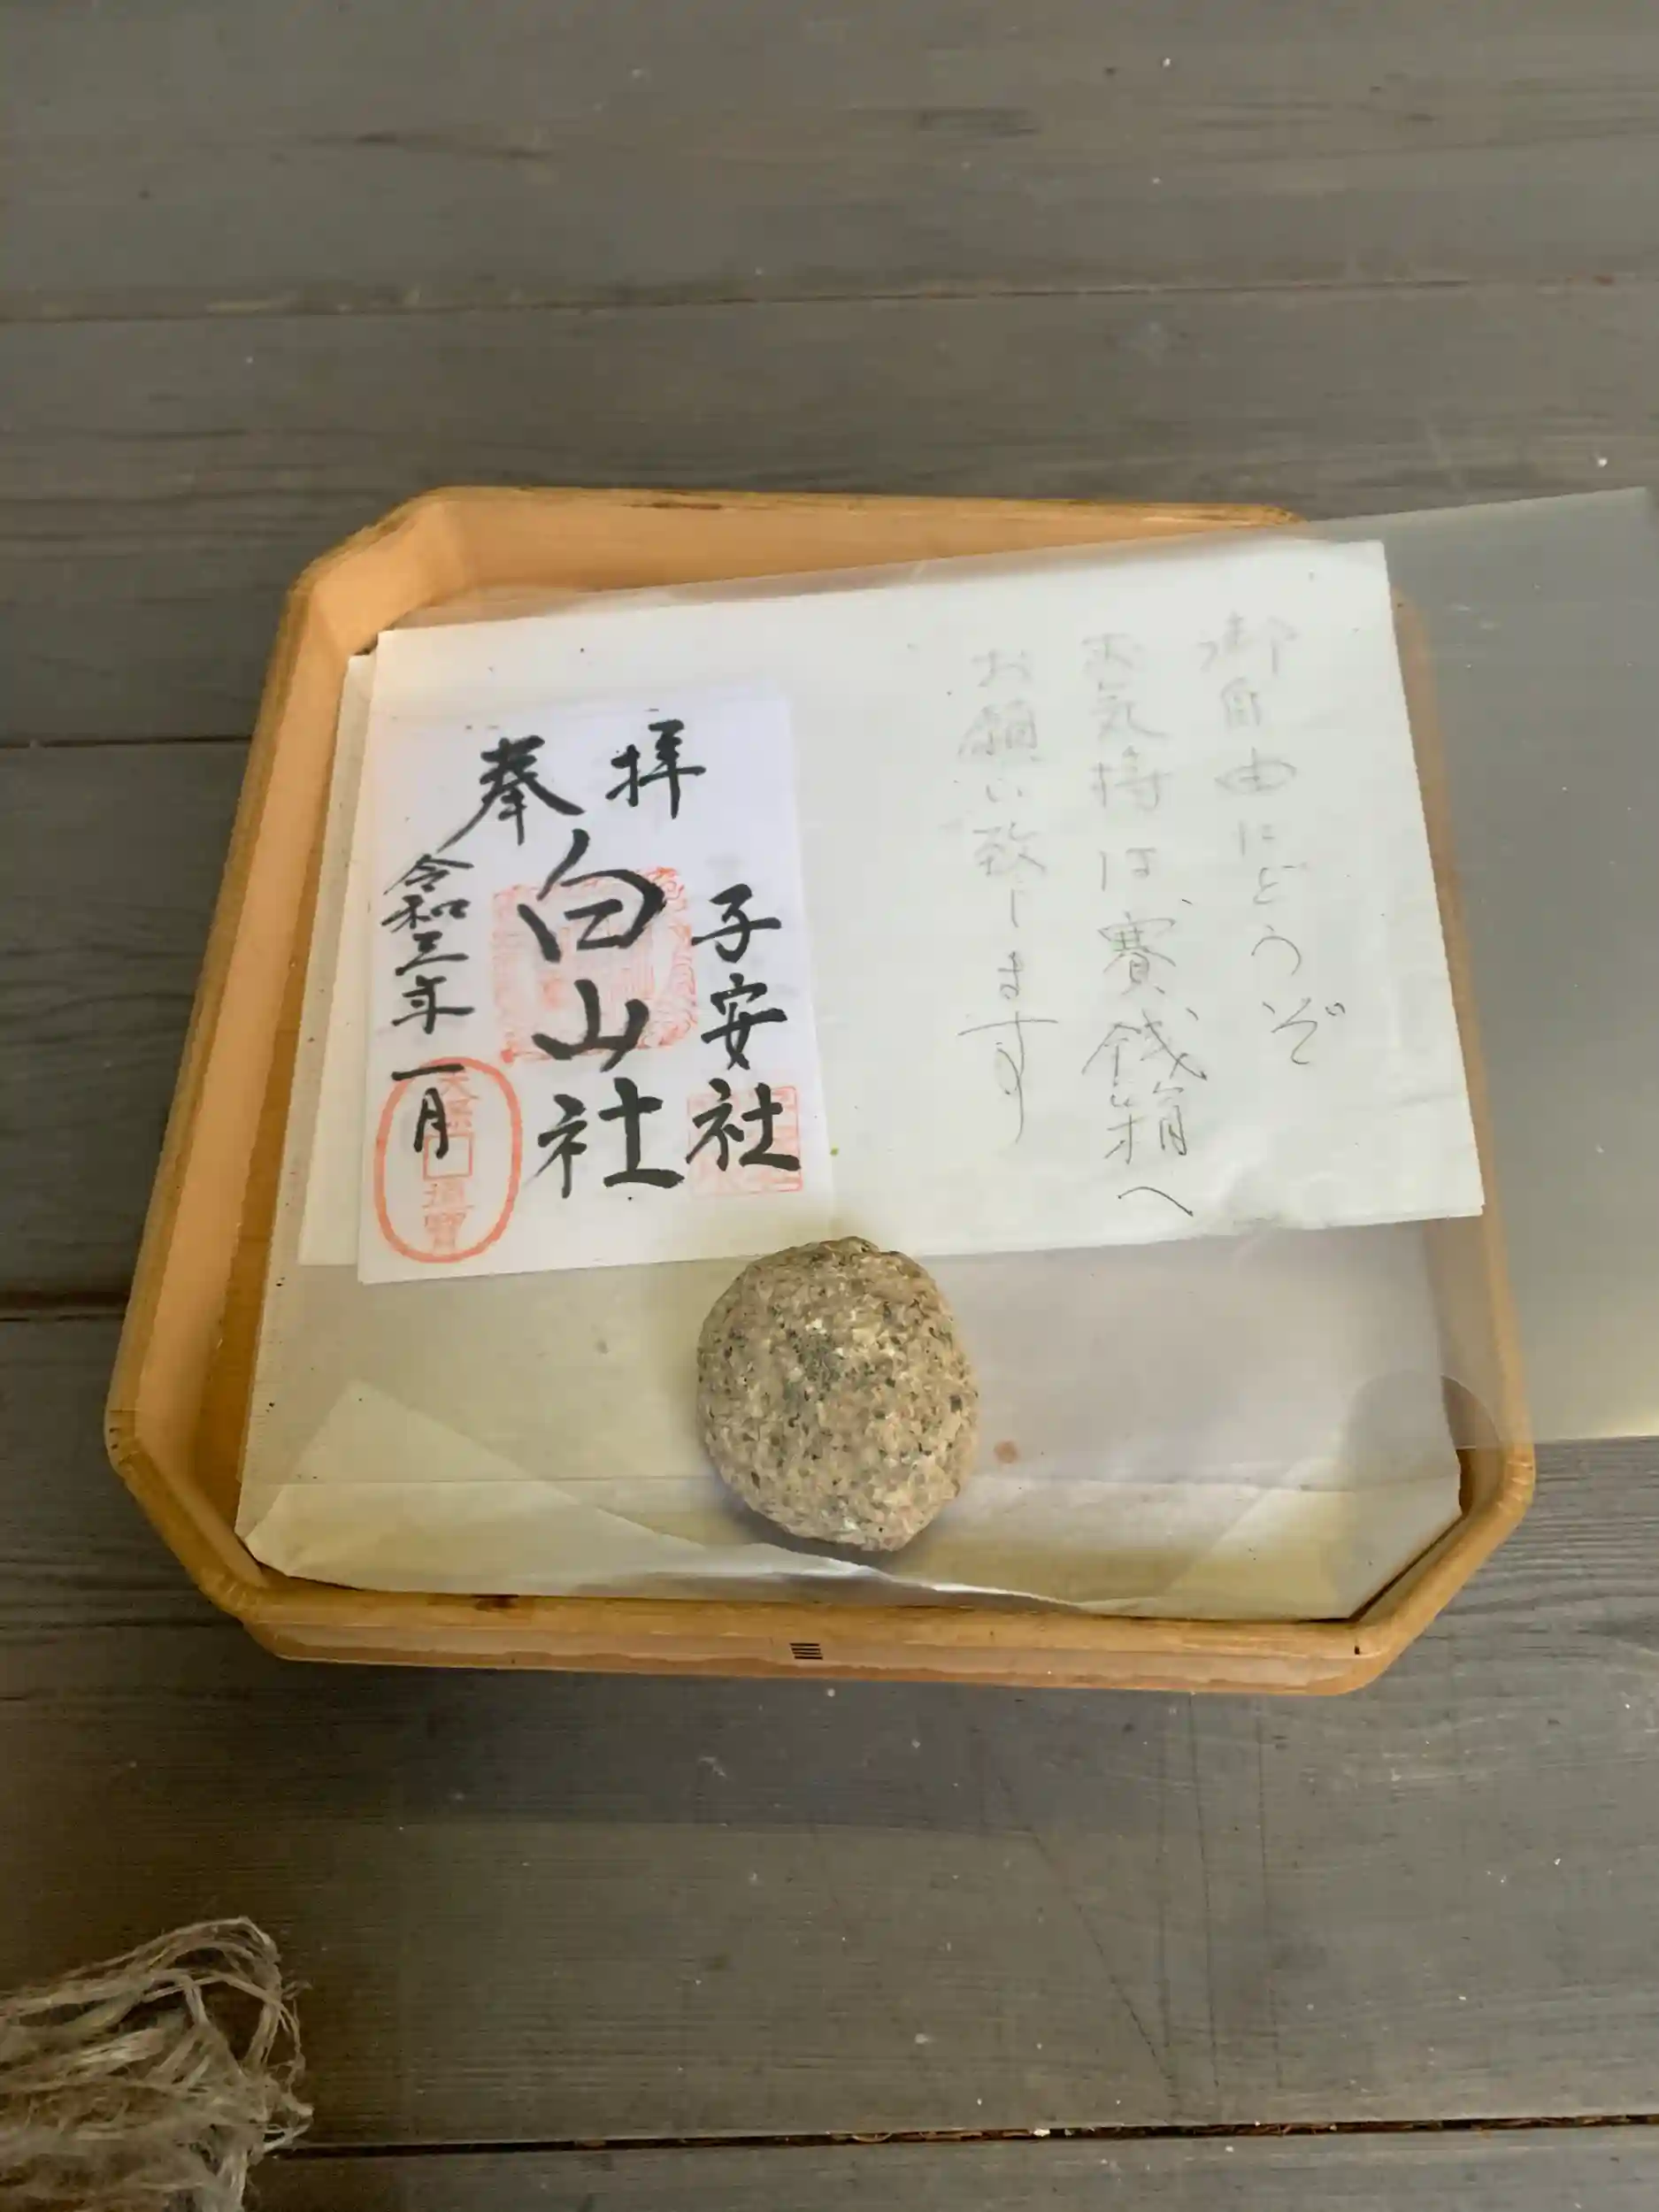 御自由にどうぞ
お気持は賽銭箱へ
お願い致します
奉拝
子安社
白山社
令和三年一月
天保
通寳